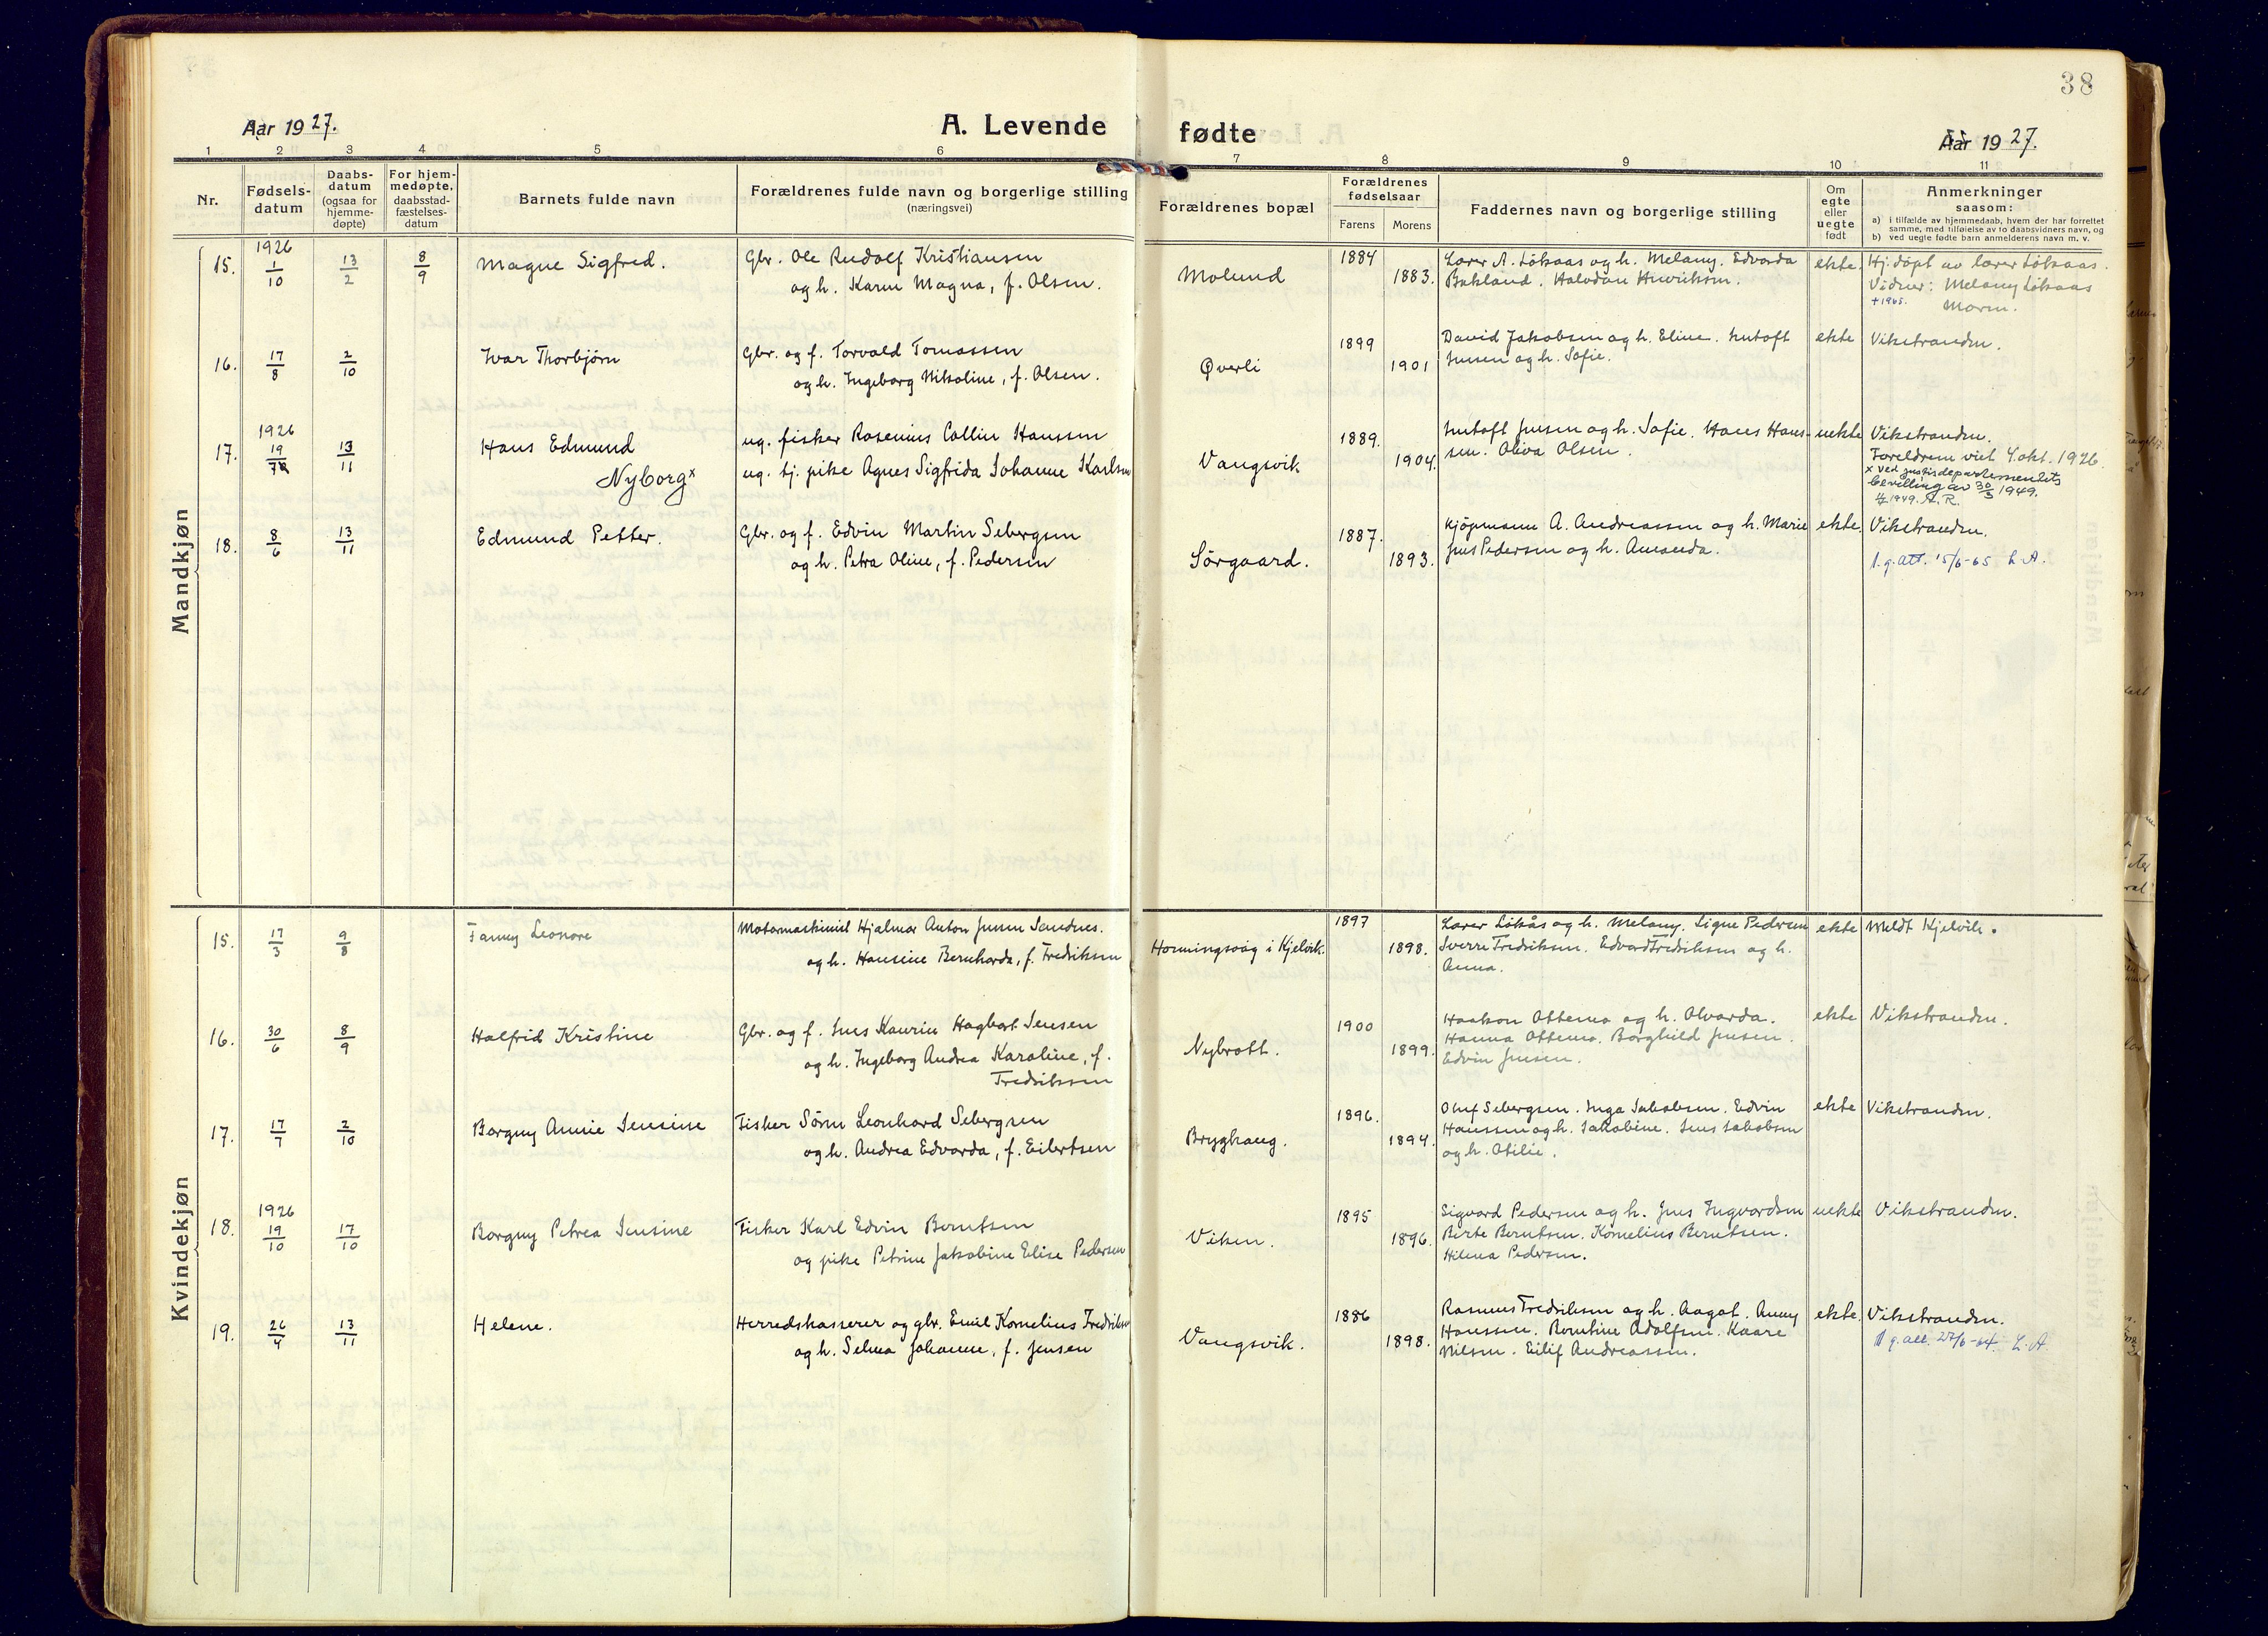 38
Aar 1927.
A. Levende
fødte
Aar 1927.
1 2 3 4 5 6 7 8 9 10 11
Nr.
Fødsels-
datum
Daabs-
datum
(ogsaa for
hjemme-
døpte)
For hjem-
medøpte,
daabsstad-
fæstelses-
datum
Barnets fulde navn
Forældrenes fulde navn og borgerlige stilling
(næringsvei)
Forældrenes bopæl
Forældrenes
fødselsaar
Farens Morens
Faddernes navn og borgerlige stilling
Om
egte
eller
uegte
født
Anmerkninger
saasom:
a) i tilfælde av hjemmedaab, hvem der har forrettet
samme, med tilføielse av to daabsvidners navn, og
b) ved uegte fødte barn anmelderens navn m. v.
Mandkjøn
15. 1926 1/10 13/2 8/9 Magne Sigfred.
Gbr. Ole Rudolf Kristiansen
og h. Karen Magna, f. Olsen.
Molund 1884 1883.
Lærer A. Løksaas og h. Melany. Edvarda
Bakland. Halvdan Henriksen.
ekte.
Hj. døpt av lærer Løksaas.
Vidner: Melany Løksaas
+1965. Moren.
16. 17/8 2/10 Ivar Thorbjørn
Gbr. og f. Torvald Tomassen
og h. Ingeborg Nikoline, f. Olsen.
Øverli 1899 1901
David Jakobsen og h. Eline.
Jensen og h. Sofie.
ekte Vikstranden.
17. 1926 19/ 13/11 Hans Edmund
Nyborg x
ug. fisker Rasenius Collin Hanssen
ug. tj. pike Agnes Sigfrida Johanne Karlsen
Vangsvik 1889. 1904.
Jensen og h. Sofie. Hans Han-
sen. Oliva Olsen.
uekte Vikstranden.
Foreldrene viet 4. okt. 1926.
x ved justisdepartementets
bevilling av 30/3 1949.
1949. A. R.
18. 8/6 13/11 Edmund Petter.
Gbr. og f. Edvin Martin Sebergsen
og h. Petra Oline, f. Pedersen
Sørgaard. 1887. 1893.
Kjøpmann A. Andreassen og h. Marie
Jens Pedersen og h. Amanda.
ekte. Vikstranden.
1. g. att. 15/6-65 L.A.
Kvindekjøn
15. 17/3 9/8 Fanny Leonore
Motormaskinist Hjalmar Anton Jensen Sandnes.
og h. Hansine Bernharda, f. Fredriksen
Honningsvåg i Kjelvik. 1897 1898.
Lærer Løkås og h. Melany. Signe Pedersen
Sverre Fredriksen. Edvard Fredriksen og h.
Anna.
ekte Meldt Kjelvik.
16. 30/6 8/9 Halfrid Kristine
Gbr. og f. Jens Kaurin Hagbart Jensen
og h. Ingeborg Andrea Karoline, f.
Fredriksen
Nybrott. 1900 1899.
Haakon Ottemo og h. Alvarda.
Hanna Ottemo. Borghild Jensen.
Edvin Jensen.
ekte Vikstranden.
17. 17/7 2/10 Borgny Annie Jensine
Fisker Søren Leonhard Sebergsen
og h. Andrea Edvarda, f. Eilertsen
Bryghaug. 1896. 1894.
Oluf Sebergsen. Inga Jakobsen. Edvin
Hanssen og h. Jakobine. Jens Jakobsen
og h. Otilie.
ekte Vikstranden.
18. 1926 19/10 17/10 Borgny Petrea Jensine
Fisker Karl Edvin Berntsen
og pike Petrine Jakobine Elise Pedersen
Viken. 1895 1896.
Sigvard Pedersen og h. Jens Ingvardsen
Birte Berntsen. Kornelius Berntsen.
Hilma Pedersen.
uekte Vikstranden.
19. 26/4 13/11 Helene.
Herredskasserer og gbr. Emil Kornelius Fredriksen
og h. Selma Johanne, f. Jensen
Vangsvik. 1886 1898.
Rasmus Fredriksen og h. Aagot. Anny
Hanssen. Berntine Adolfsen. Kaare
Nilsen. Eilif Andreassen.
ekte. Vikstranden.
1 g. att. 27/6-64. L.A.